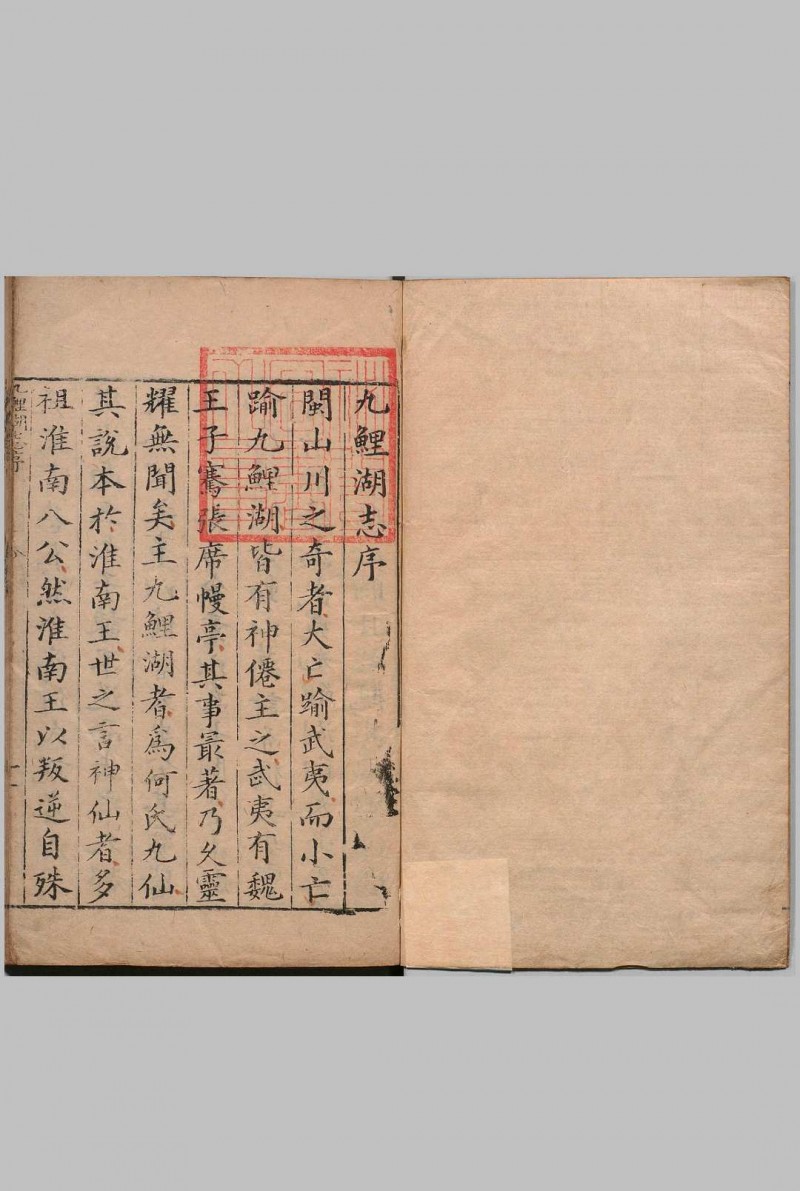 九鯉湖志序
閩山川之奇者大亡踰武夷而小亡
踰九鯉湖皆有神僊主之武夷有魏
王子騫張席幔亭其事最著乃乆靈
耀無聞矣主九鯉湖者爲何氏九仙
其說本於淮南王世之言神仙者多
祖淮南八公然淮南王以叛逆自殊
九鯉湖志序